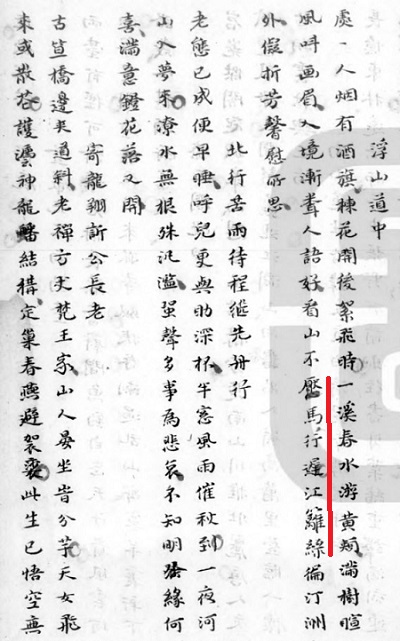 浮山道中
處〻人烟有酒旗楝花開後絮飛時一溪春水游黃頰滿樹暄
風呌画眉入境漸聱人語好看山不壓馬行遲江籬綠徧汀洲
外儗折芳馨慰所思
北行苦雨待程繼先舟行
老態已成便早睡呼兒更與助深杯半窓風雨催秋到一夜河
山入夢来潦水無根殊汜濫蛩聲多事為悲哀不知明發緣何
喜滿意鐙花落又開
寄龍翔訢公長老
古豈橋邊夾道斜老禪方丈梵王家山人晏坐皆分芋天女飛
来或散花護灋神龍蟠結搆定巢春燕避袈裟此生已悟空無